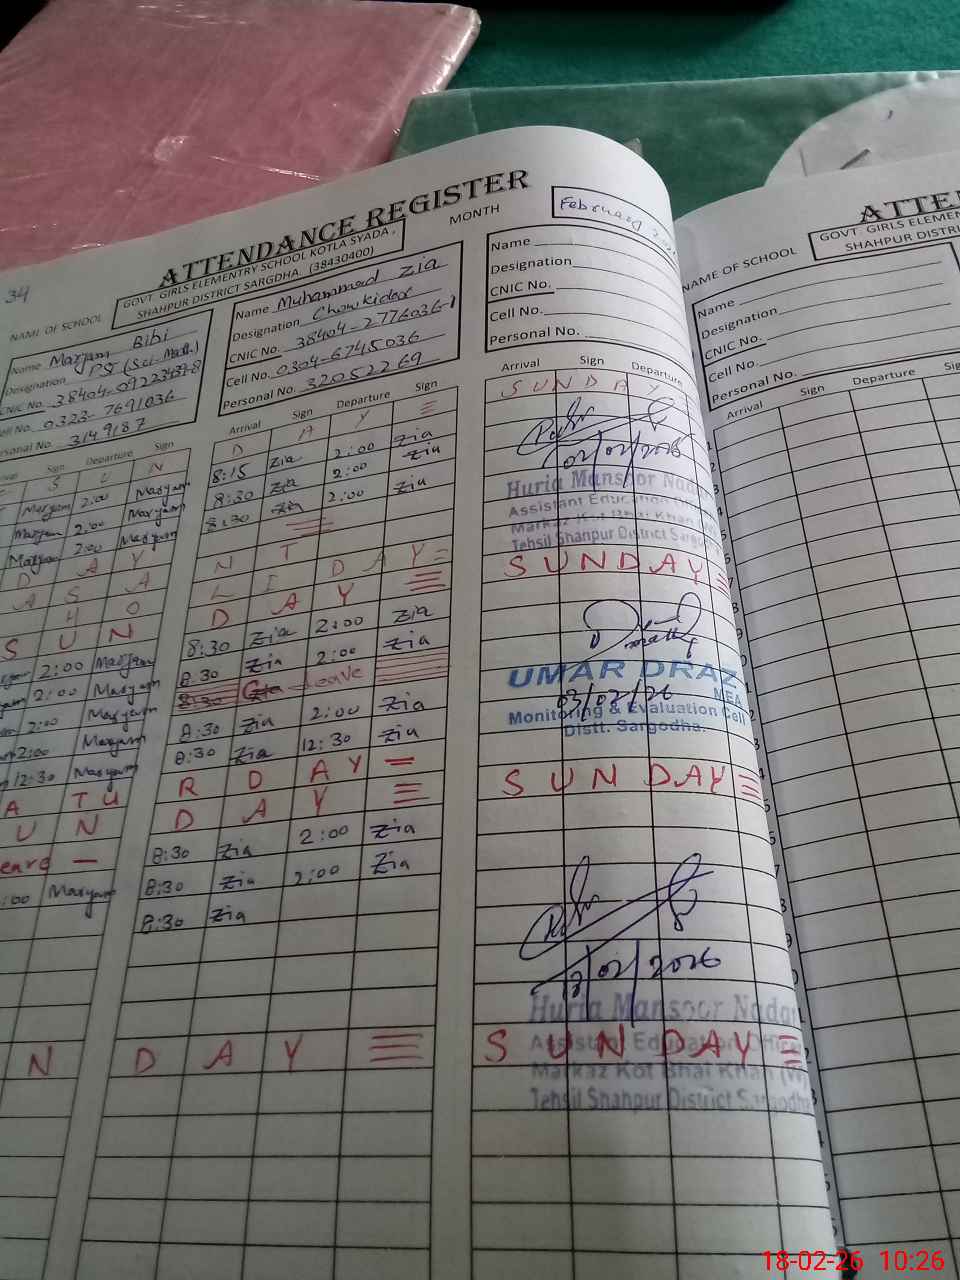 34
ATTENDANCE REGISTER
NAME OF SCHOOL
GOVT. GIRLS ELEMENTRY SCHOOL KOTLA SYADA,
SHAHPUR DISTRICT SARGDHA. (38430400)
MONTH
February
Name Maryam Bibi
Designation PST (Sci. Math.)
CNIC No.
Cell No. 0323-7691036
Personal No. 3149187
Name Muhammad Zia
Designation Chowkidar
CNIC No. 38404-2776036-1
Cell No. 0304-6745036
Personal No. 32052269
Name
Designation
CNIC No.
Cell No.
Personal No.
Sign Departure Sign
S U N
Maryam 2:00 Maryam
Maryam 2:00 Maryam
Maryam 2:00 Maryam
D A Y
A S A
H O
S U N
2:00 Maryam
2:00 Maryam
2:00 Maryam
2:00 Maryam
12:30 Maryam
A T U
U N
:00 Maryam
N
Arrival Sign Departure Sign
D A Y
8:15 Zia 2:00 Zia
8:30 Zia 2:00 Zia
8:30 Zia 2:00 Zia
N T
L I D A Y
D A Y
8:30 Zia 2:00 Zia
8:30 Zia 2:00 Zia
8:30 Zia Leave
8:30 Zia 2:00 Zia
8:30 Zia 12:30 Zia
R D A Y
D A Y
8:30 Zia 2:00 Zia
8:30 Zia 2:00 Zia
8:30 Zia
D A Y
Arrival Sign Departure
S U N D A Y
02/02/2026
Huria Mansoor Nadar
Assistant Education
Markaz Kot Bhai Khan
Tehsil Shahpur District Sargo
S U N D A Y
UMAR DRAZ
03/02/26
MEA
Monitoring & Evaluation Cell
Distt. Sargodha.
S U N D A Y
/02/2026
Huria Mansoor Nadar
Assistant Education Office
Markaz Kot Bhai Khan (W)
Tehsil Shahpur District Sargodha
S U N D A Y
ATTE
NAME OF SCHOOL
GOVT. GIRLS ELEMEN
SHAHPUR DISTRI
Name
Designation
CNIC No.
Cell No.
Personal No.
Arrival Sign Departure
18-02-26 10:26